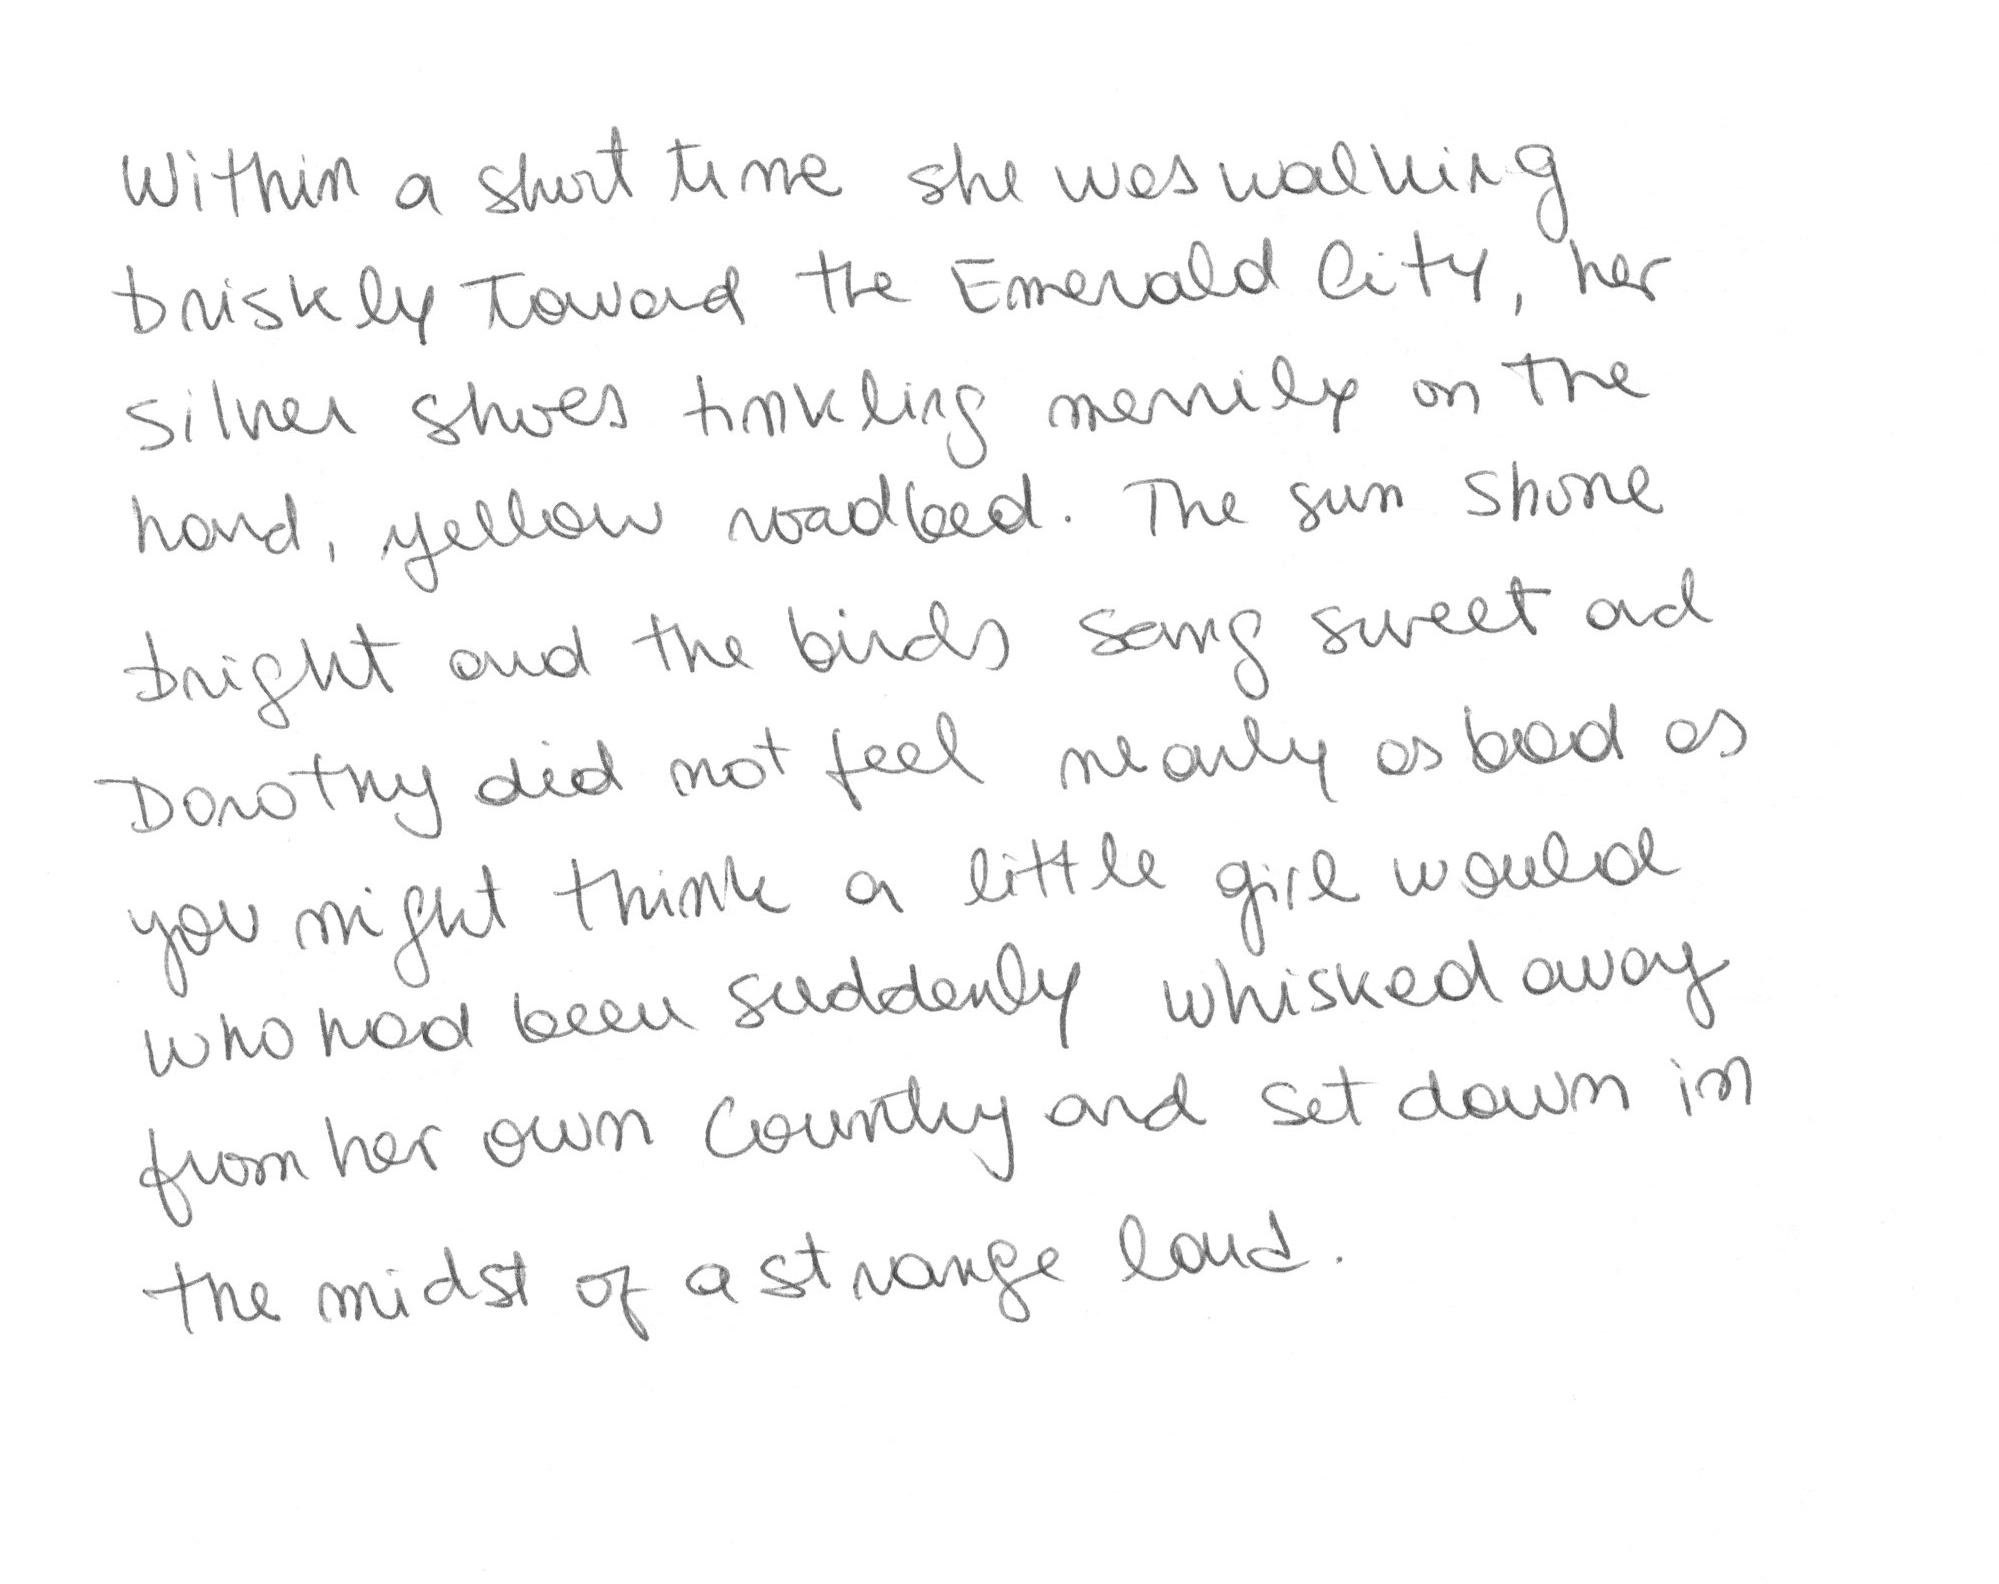 Within a short time she was walking
briskly toward the Emerald City, her
silver shoes tinkling merrily on the
hard, yellow roadbed. The sun shone
bright and the birds sang sweet ad
Dorothy did not feel nearly as bad as
you might think a little girl would
who had been suddenly whisked away
from her own country and set down in
the midst of a strange land.